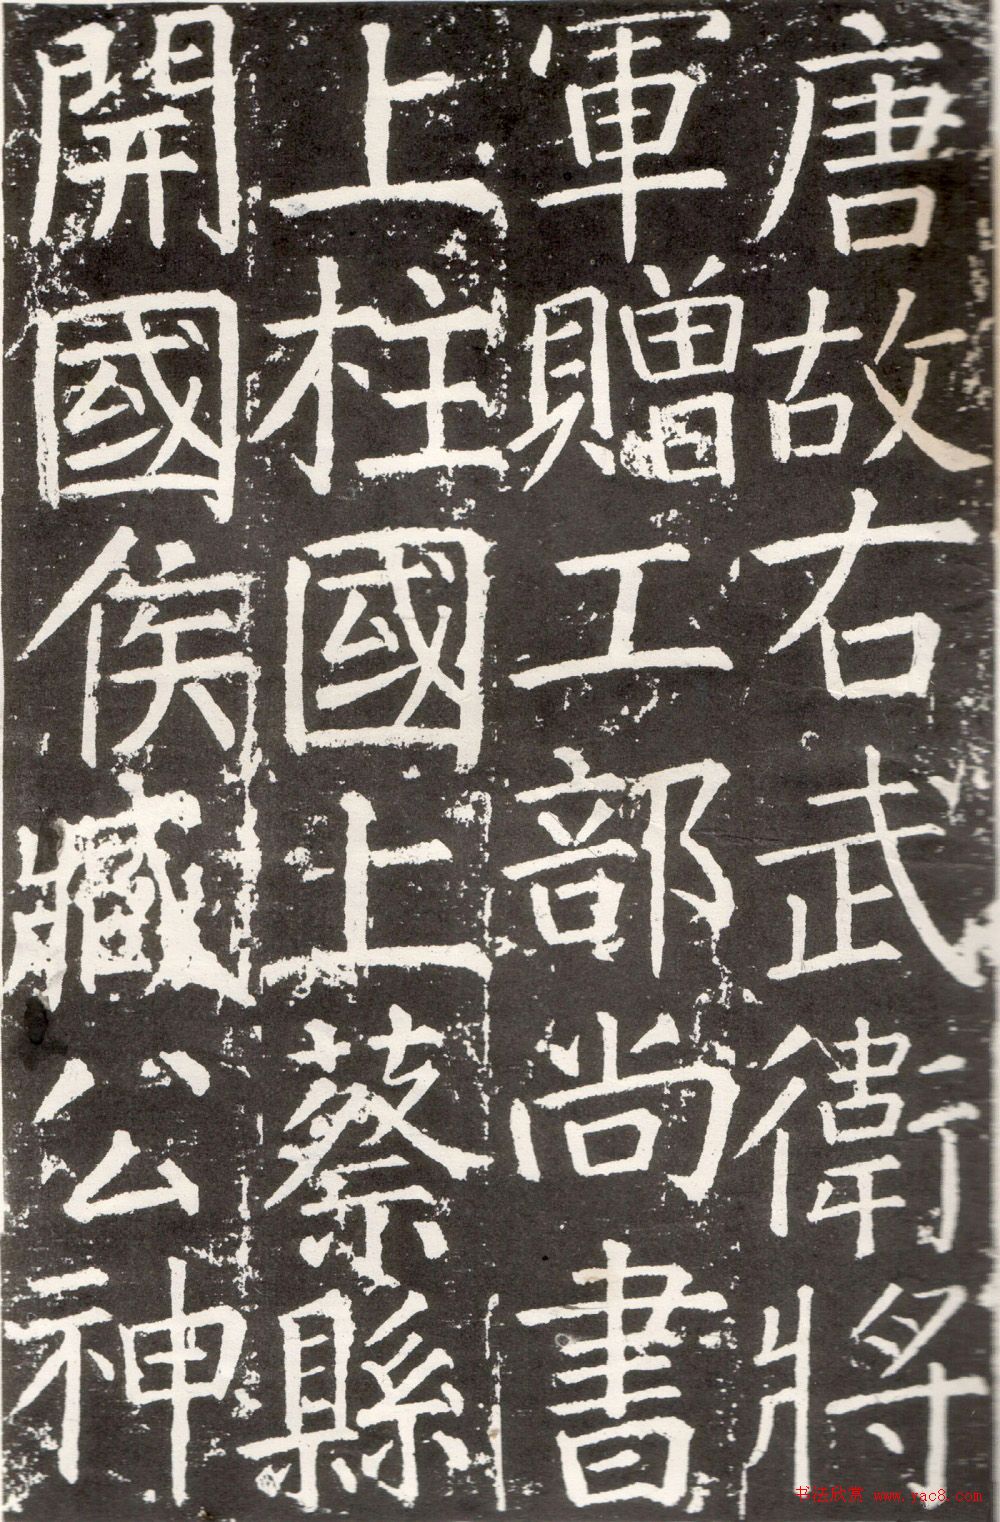 唐故右武衛將
軍贈工部尚書
上柱國上蔡縣
開國侯臧公神
书法欣赏 www.yac8.com